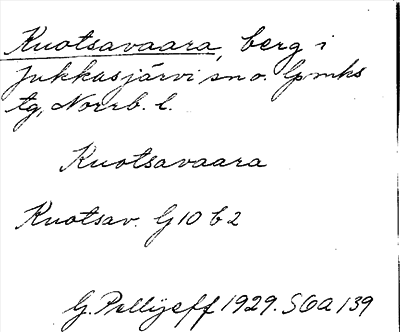 Kuotsavaara, berg i
Jukkasjärvi sn o. lpmks
tg, Norrb. l.
Kuotsavaara
Kuotsav. G 10 b 2
G. Pellijeff 1929. SOA 139